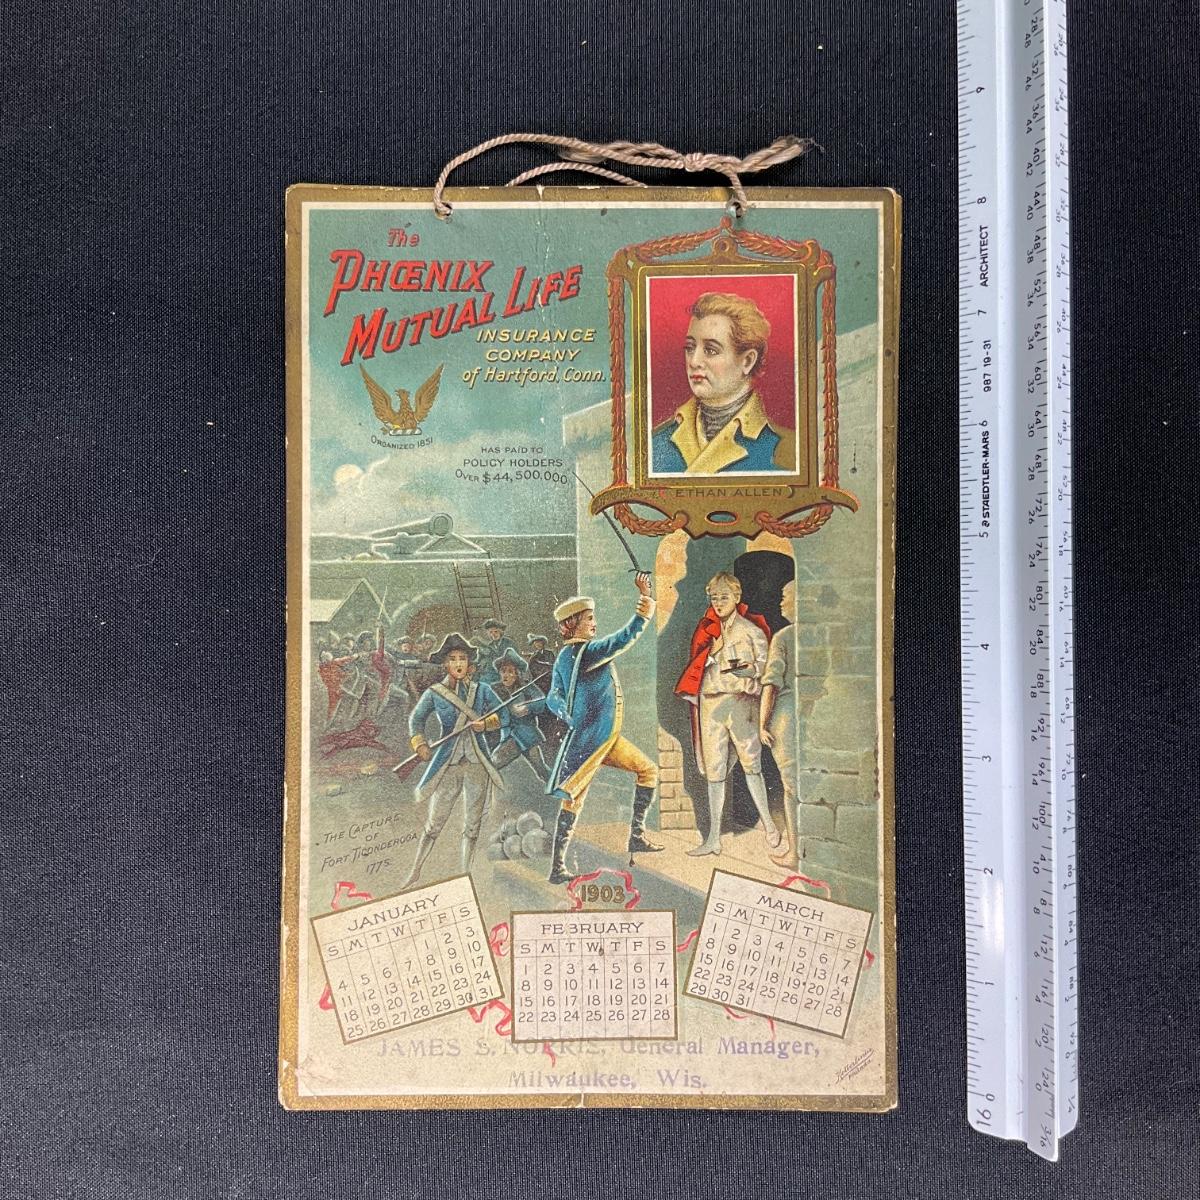 The
PHŒNIX
MUTUAL LIFE
INSURANCE
COMPANY
of Hartford, Conn.
ORGANIZED 1851
HAS PAID TO
POLICY HOLDERS
OVER $44,500,000
ETHAN ALLEN
THE CAPTURE
OF
FORT TICONDEROGA
1775
1903
JANUARY
S M T W T F S
1 2 3
4 5 6 7 8 9 10
11 12 13 14 15 16 17
18 19 20 21 22 23 24
25 26 27 28 29 30 31
FEBRUARY
S M T W T F S
1 2 3 4 5 6 7
8 9 10 11 12 13 14
15 16 17 18 19 20 21
22 23 24 25 26 27 28
MARCH
S M T W T F S
1 2 3 4 5 6 7
8 9 10 11 12 13 14
15 16 17 18 19 20 21
22 23 24 25 26 27 28
29 30 31
JAMES S. NORRIS, General Manager,
Milwaukee, Wis.
STAEDTLER-MARS 987 19-31 ARCHITECT
16 0 1 2 3 4 5 6 7 8 9